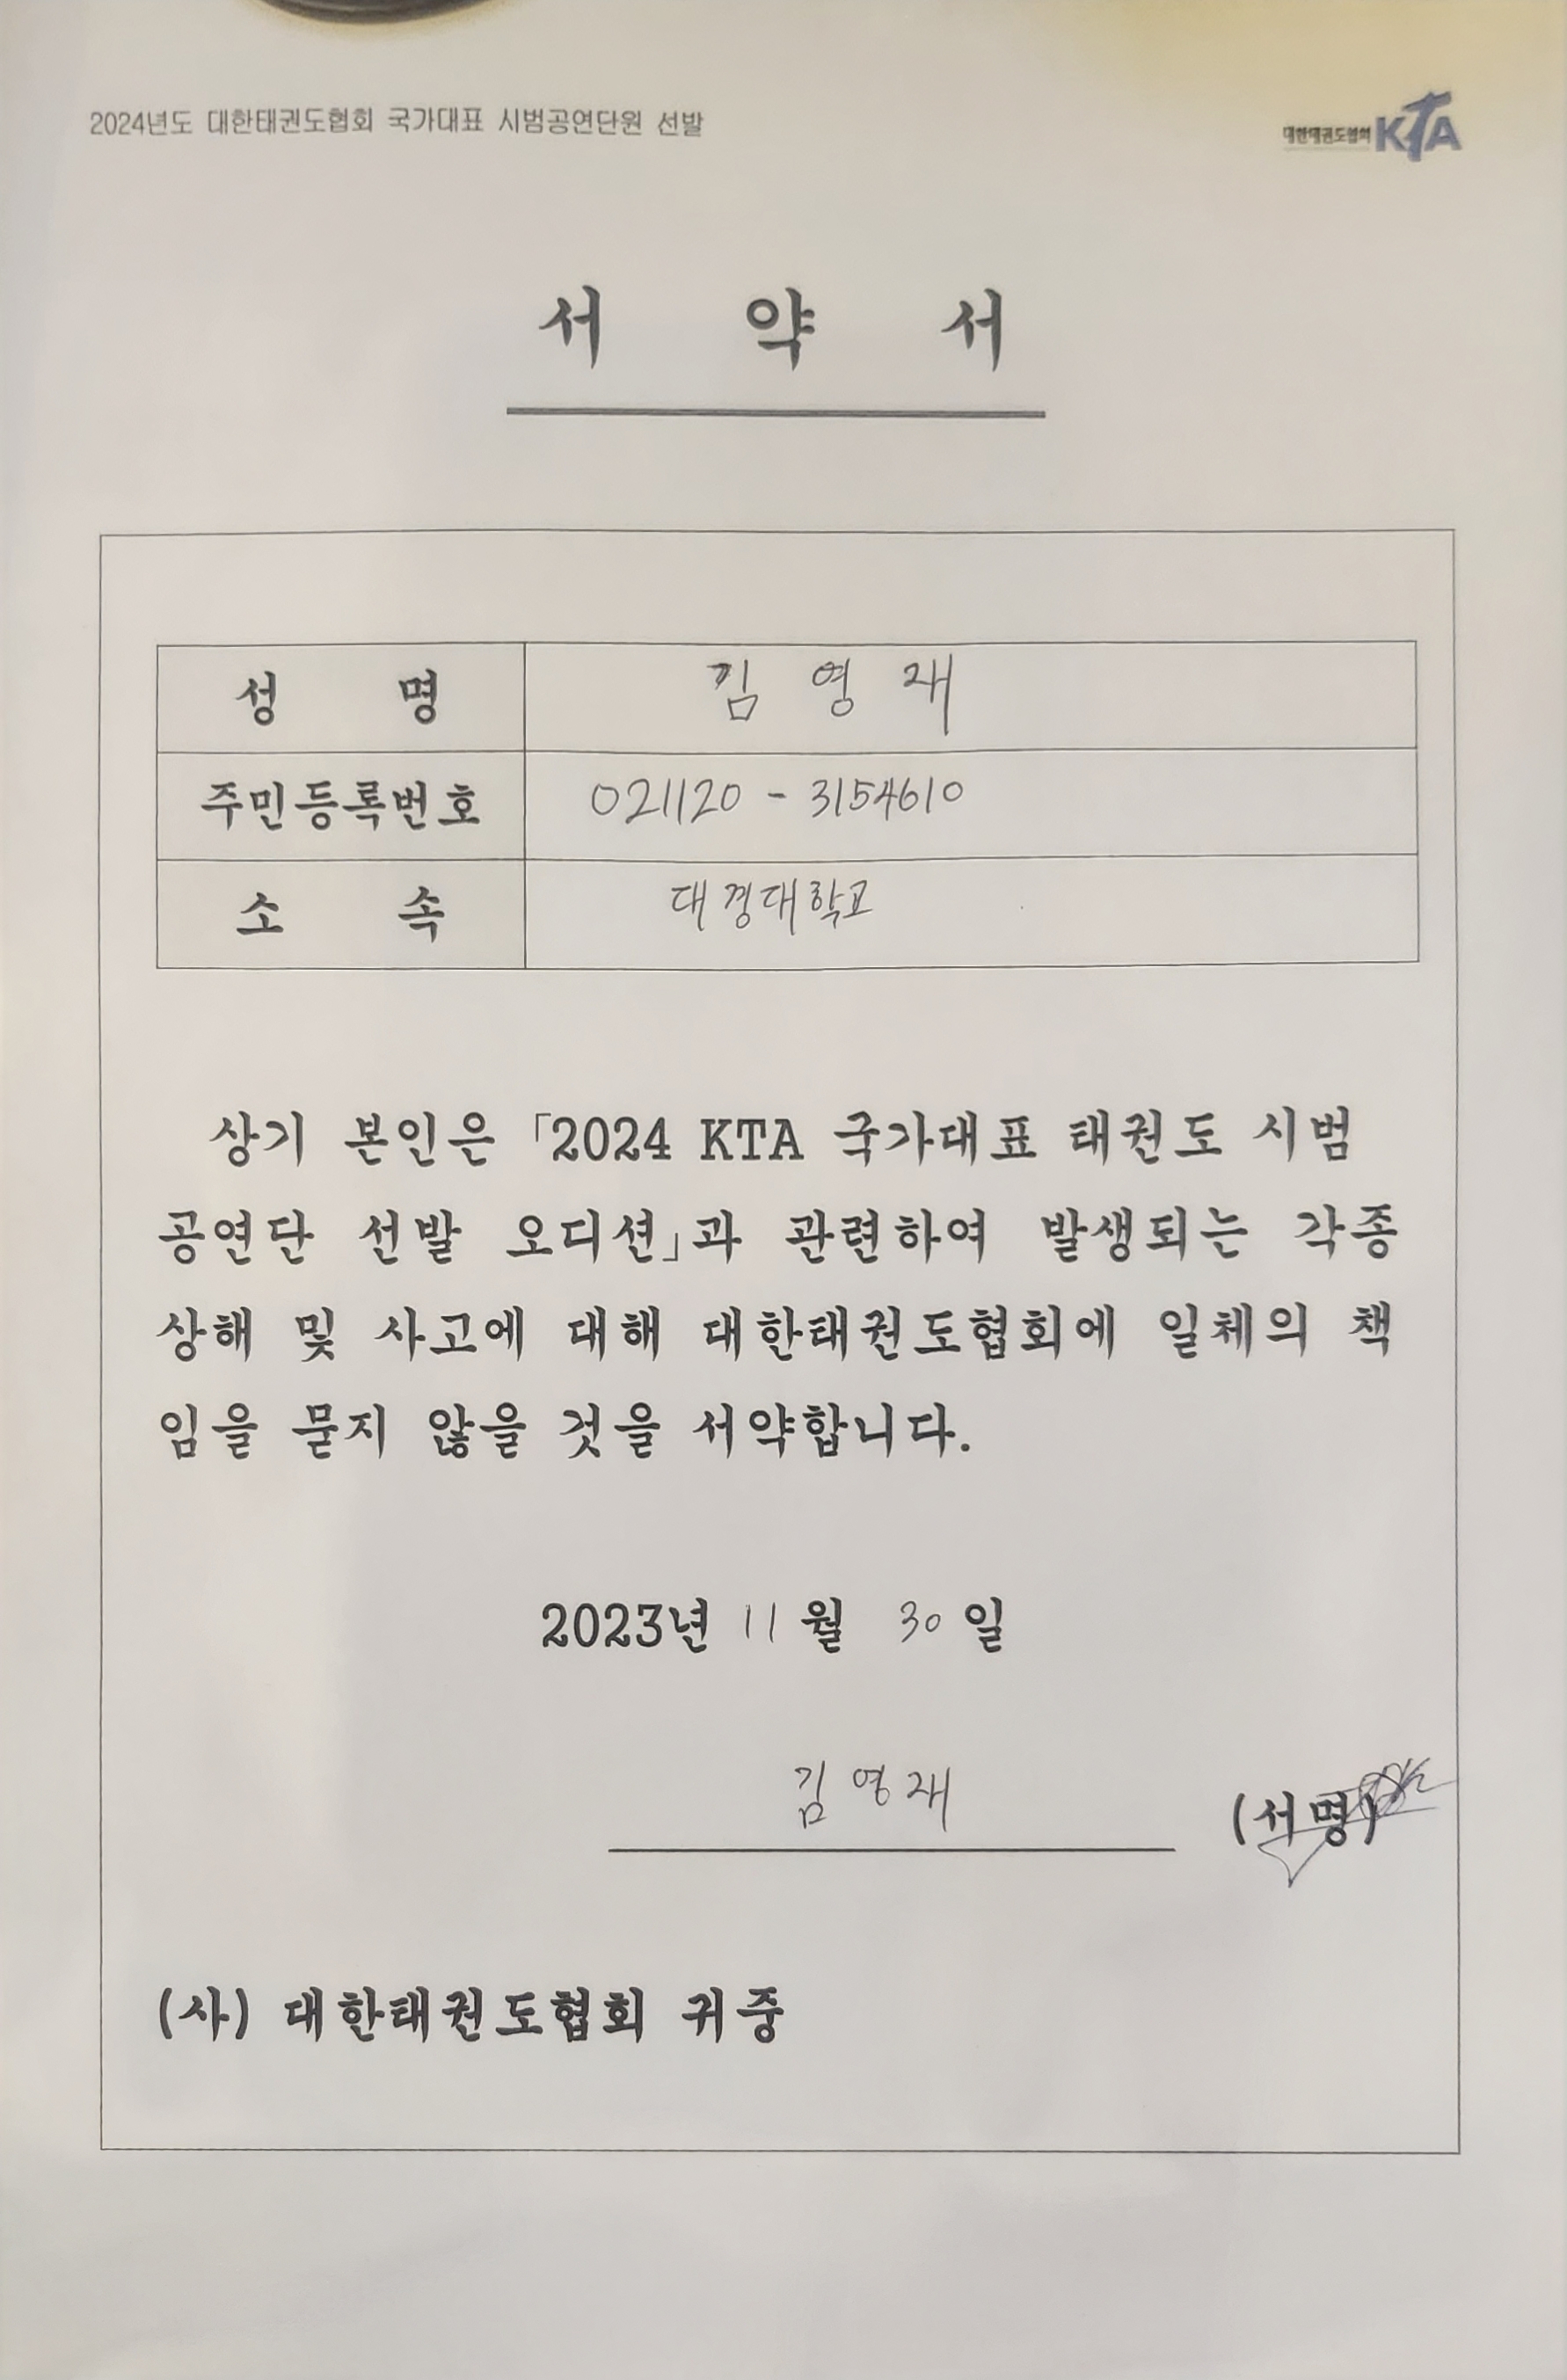 2024년도 대한태권도협회 국가대표 시범공연단원 선발
대한태권도협회 KTA
서 약 서
성 명 김 영 재
주민등록번호 021120 - 3154610
소 속 대경대학교
상기 본인은 「2024 KTA 국가대표 태권도 시범
공연단 선발 오디션」과 관련하여 발생되는 각종
상해 및 사고에 대해 대한태권도협회에 일체의 책
임을 묻지 않을 것을 서약합니다.
2023년 11 월 30 일
김 영 재 (서명)
(사) 대한태권도협회 귀중